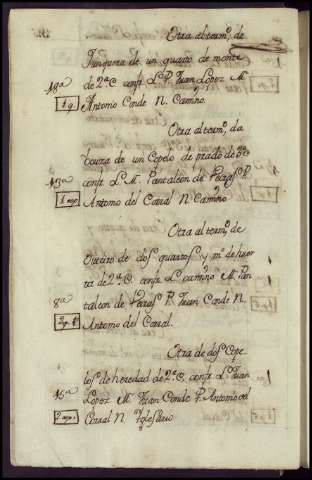 Otra al term.º de
Junquera de un quarto de monte
de 2.ª C. confr. L. P. Juan Lopez M.
Antonio Conde N. Camino.
18ª
1 q.
Otra al term.º da
de un Copelo de prado de 3ª
confr. L. M. Pantaleon de P.
Antonio del Corral N. Camino
13ª
Otra al term.º de
de dos quartos y m.º de huer
ta de 2.ª C. confr. L. camino M. Pan
taleon de P. Juan Conde N.
Antonio del Corral.
8ª
Otra de dos Cope
los de heredad de 2.ª C. confr. L. Juan
Lopez M. Juan Conde P. Antonio del
Corral N. Yglesario
16ª